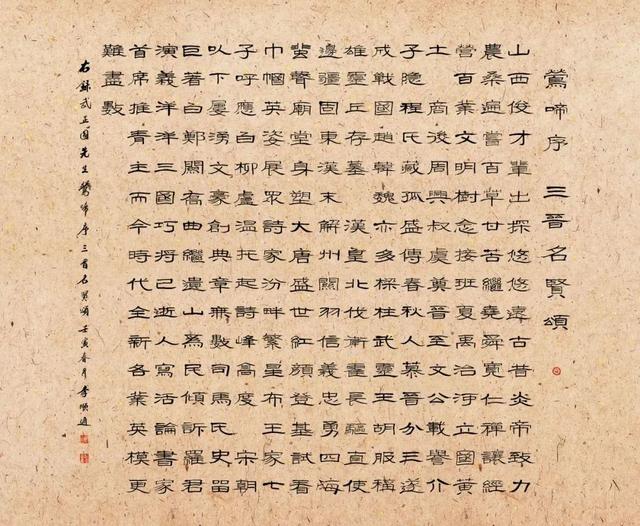 鶯啼序 三晉名賢頌
山西俊才輩出探悠悠遠古昔炎帝致力
農桑遍嘗百草甘苦繼堯舜寬仁禪讓經
營百業文明樹念接班夏禹治河立國黃
土 商後周興叔虞奠晉至文公載譽介
子隱程氏藏孤盛傳春秋人慕晉分三遂
成戰國趙韓魏亦多樑柱武靈王胡服稱
雄靈丘存墓 漢皇北伐衛青長驅直使
邊疆固東漢末解州關羽信義忠勇四海
蜚聲廟堂身塑大唐盛世紅顏登基試看
巾幗英姿展眾詩家汾畔繁星布王家七
子呼應白柳盧溫托起詩峰高度 宋朝
以下屢湧文豪創典章無數司馬氏史留
巨著白鄭關喬曲繼遺山為民傾訴羅君
演義洋洋三國巧將已逝人寫活論書家
首席推青主而今時代全新各業英模更
難盡數
右錄武正國先生鶯啼序三晉名賢頌 壬寅春月 李順通